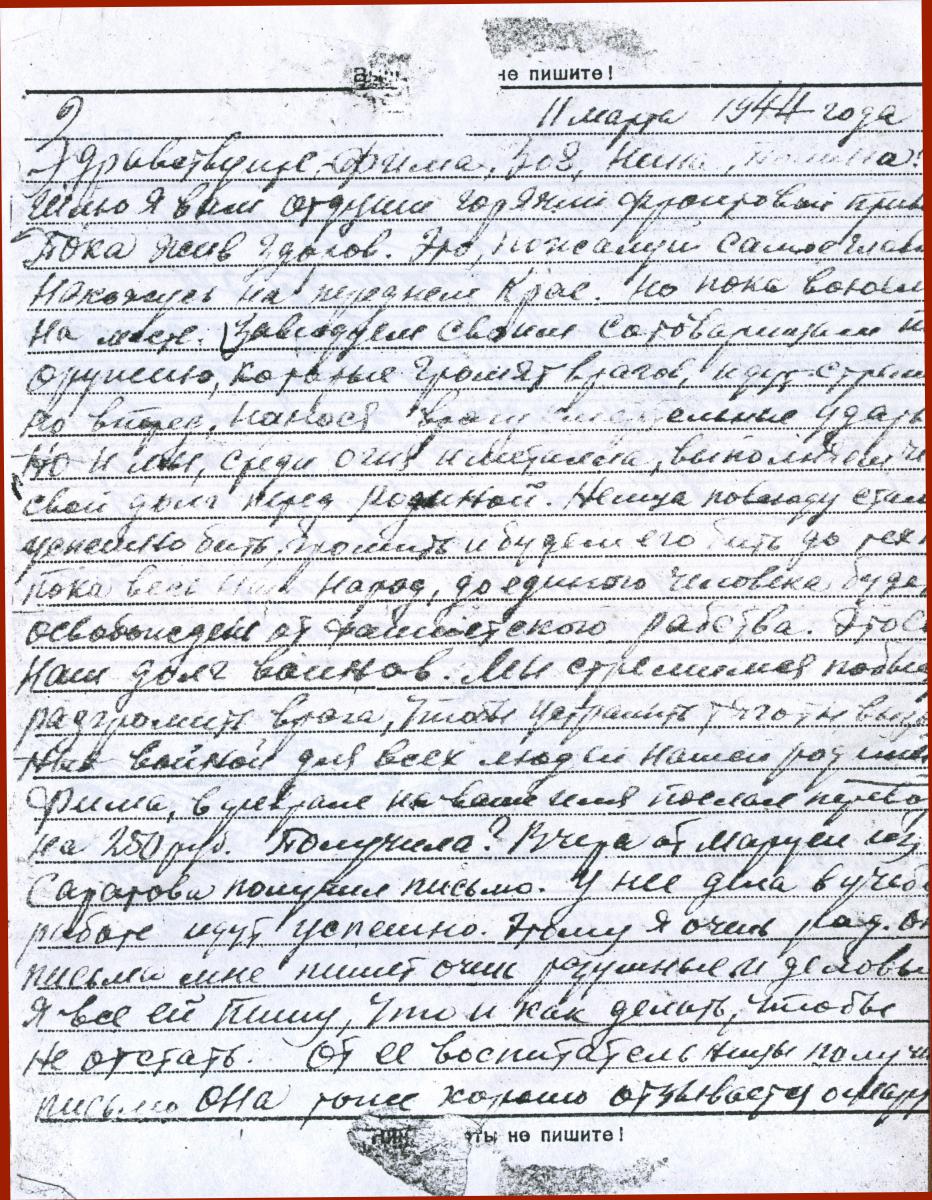 не пишите!
2
11 марта 1944 года
Здравствуйте, Фима, Зоя, Нина,
Шлю я вам от души горячий фронтовой прив
Пока жив здоров. Это, пожалуй самое глав
Нахожусь на переднем крае. Но пока воюем
на месте. Завидуем своим сотоварищам п
оружию, которые громят врагов, идут стрем
но вперед, нанося врагу смертельные удары
Но и мы, среди огня и металла, выполняем че
свой долг перед Родиной. Немца повсюду стал
успешно бить, громить и будем его бить до тех п
пока весь наш народ, до единого человека буде
освобожден от фашистского рабства. Это
наш долг воинов. Мы стремимся побыс
разгромить врага, чтобы устранить тяготы вызв
войной для всех людей нашей родины
Фима, в феврале на ваше имя послал перево
на 250 руб. Получила? Вчера от Маруси из
Саратова получил письмо. У нее дела в учеб
работе идут успешно. Этому я очень рад. Он
письма мне пишет очень разумные и деловы
Я все ей пишу, что и как делать, чтобы
не отстать. От ее воспитательницы получи
письмо Она тоже хорошо отзывается о Мару
ты не пишите!